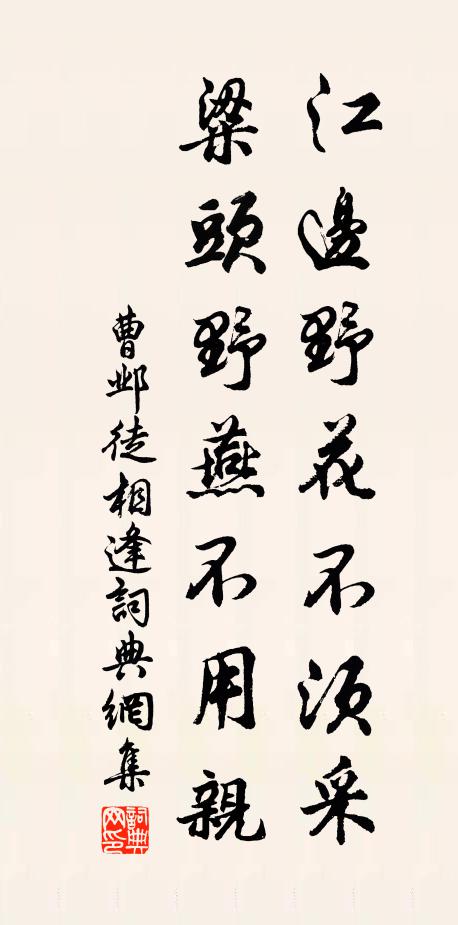 江邊野花不須采
梁頭野燕不用親
曹鄴徒相逢詞典網集
詞典網印